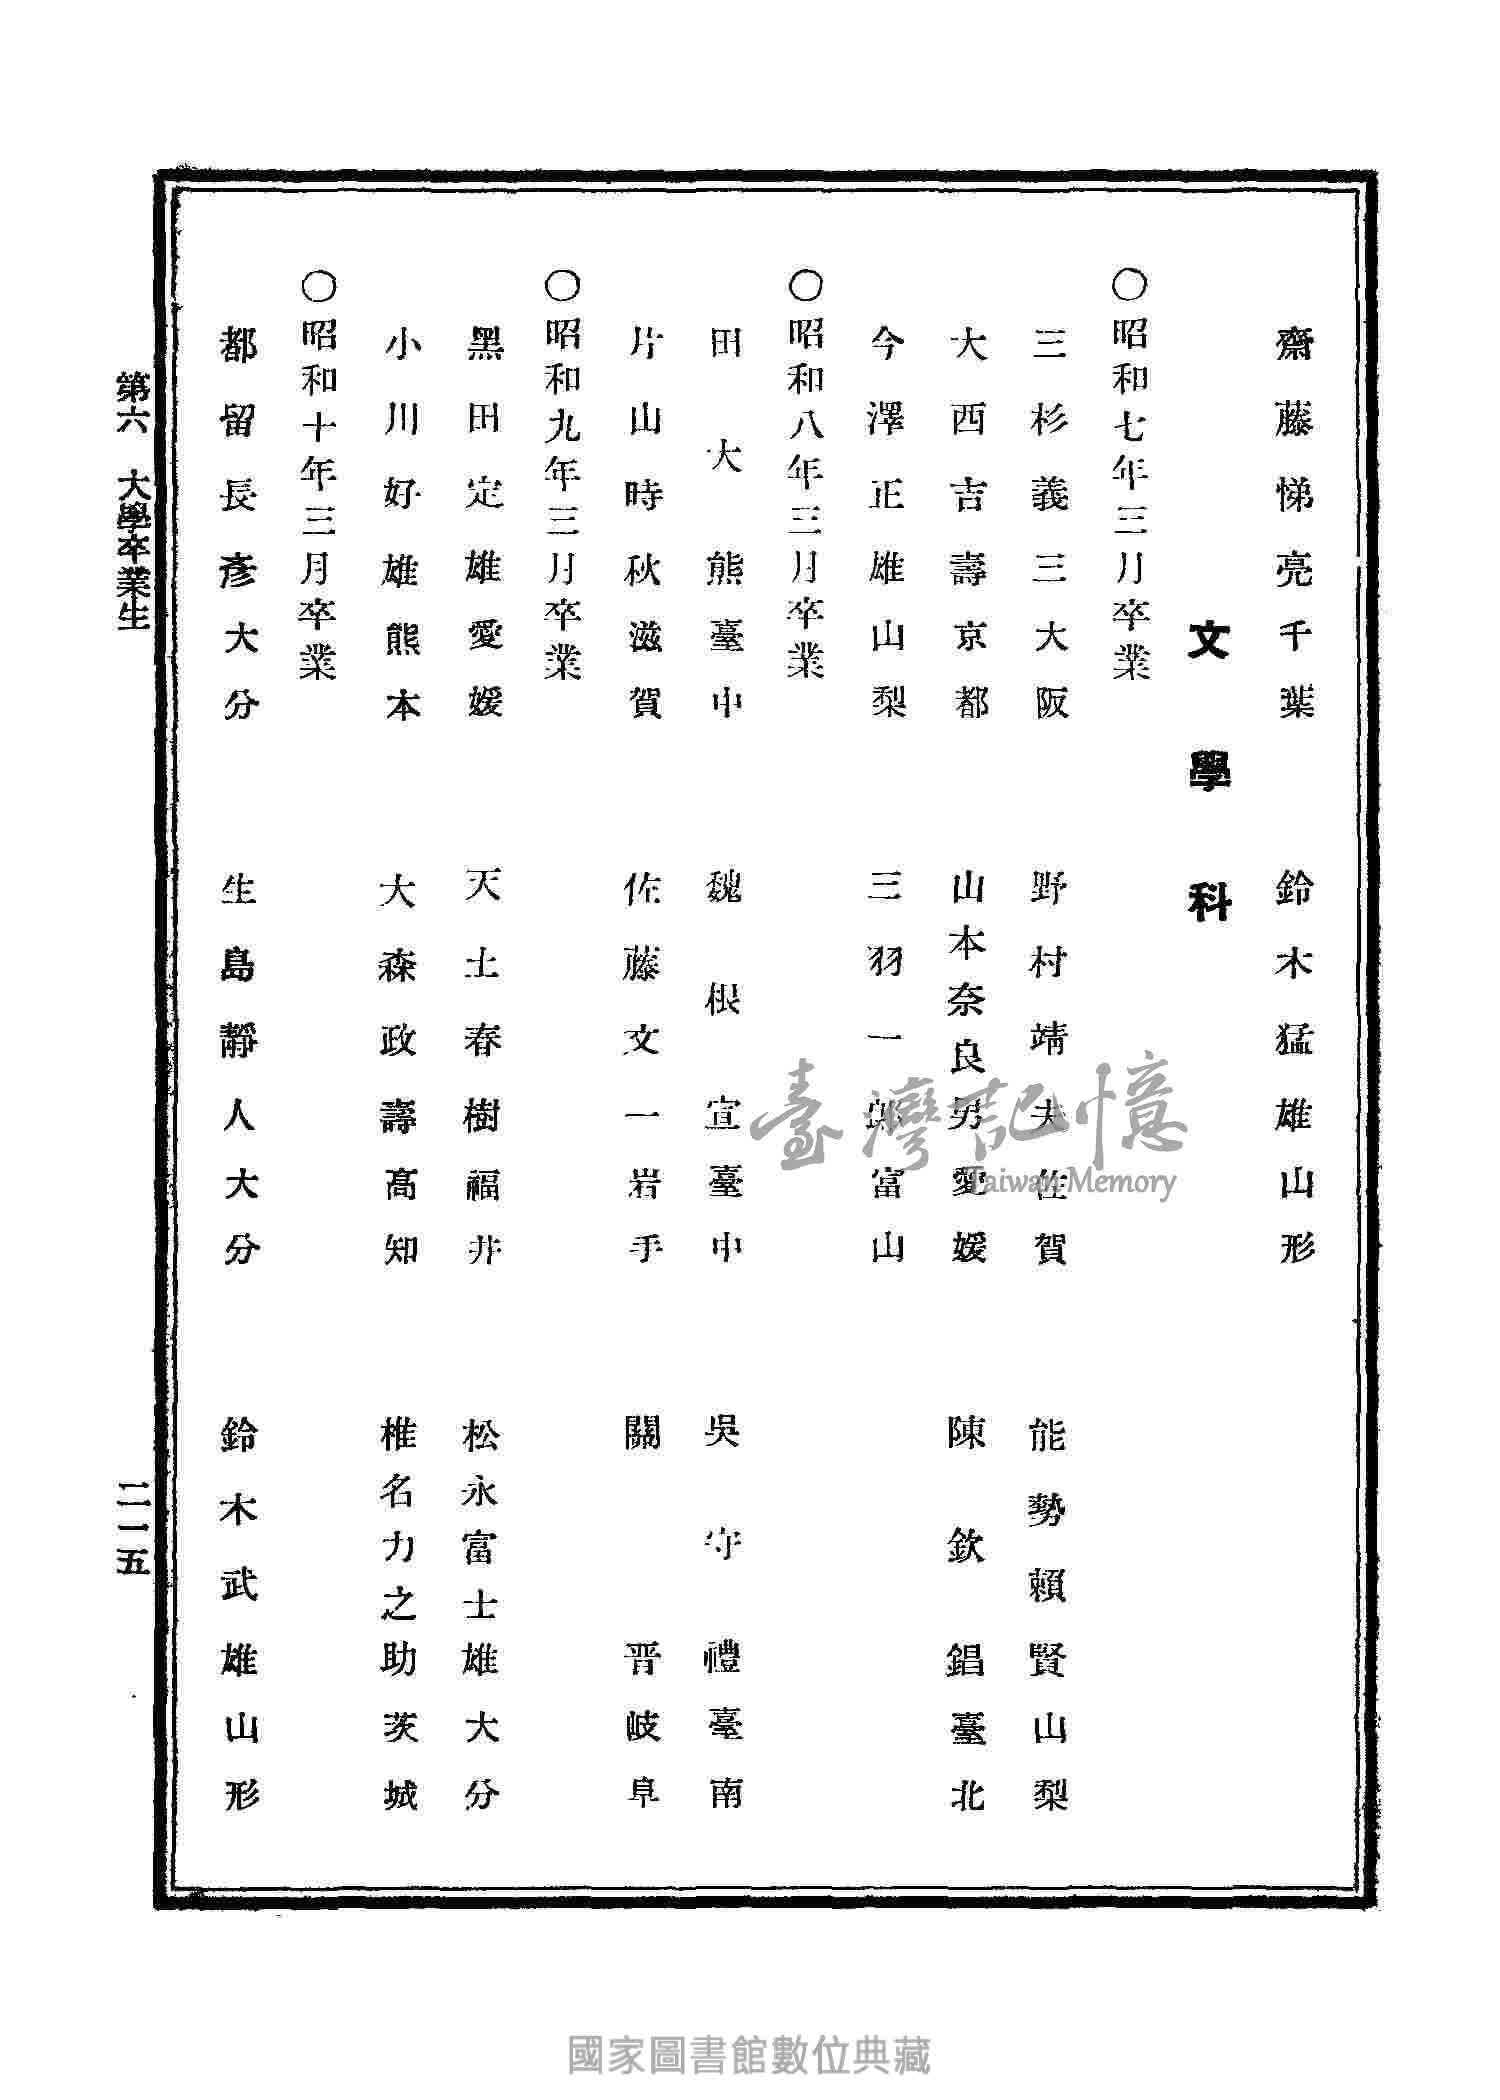 齋藤悌亮千葉
鈴木猛雄山形
文學科
〇昭和七年三月卒業
三杉義三大阪
野村靖夫佐賀
能勢賴賢山梨
大西吉壽京都
山本奈良男愛媛
陳欽錩臺北
今澤正雄山梨
三羽一郎富山
〇昭和八年三月卒業
田大熊臺中
魏根宣臺中
吳守禮臺南
片山時秋滋賀
佐藤文一岩手
關晋岐阜
〇昭和九年三月卒業
黑田定雄愛媛
天土春樹福井
松永富士雄大分
小川好雄熊本
大森政壽高知
椎名力之助茨城
〇昭和十年三月卒業
都留長彥大分
生島靜人大分
鈴木武雄山形
第六 大學卒業生
二一五
臺灣記憶
Taiwan Memory
國家圖書館數位典藏